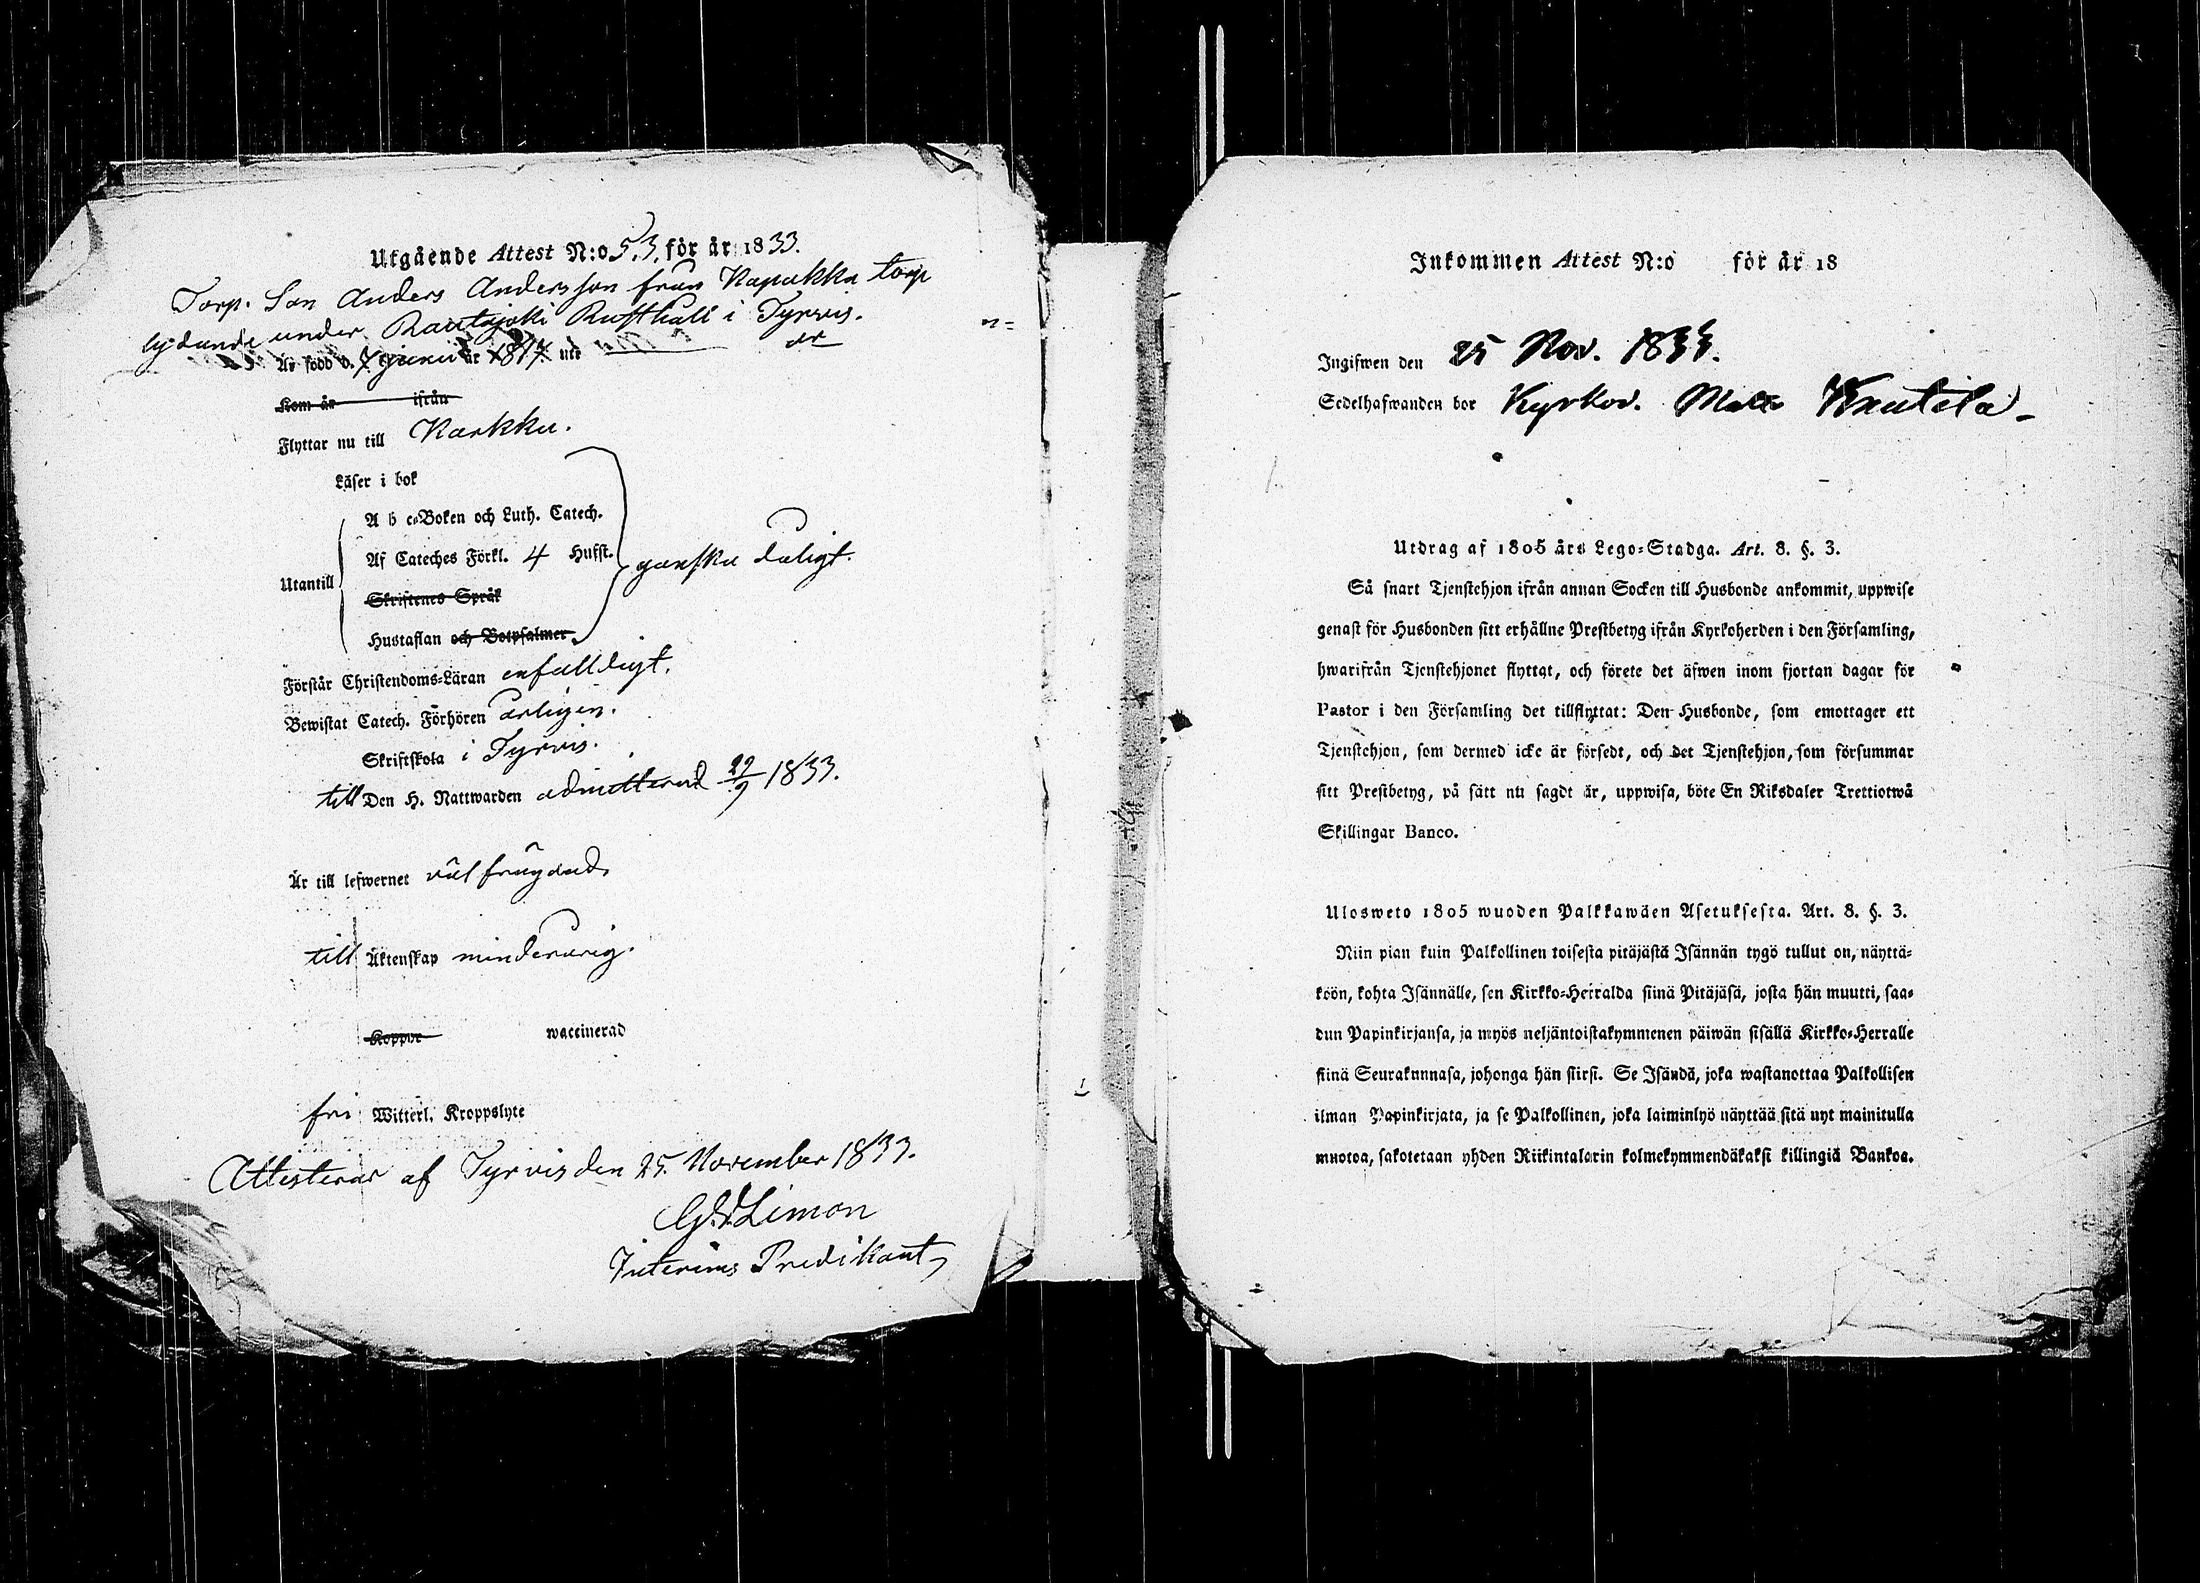 Utgående Attest N:o 53. för år 1833.
Torp. Son Anders Andersson från Kapakka torp
lydande under Rautajoki Rusthåll i Tyrvis.
Är född d. 7 Junii år 1817 ute
Kom år ifrån
Flyttar nu till Karkku.
Läser i bok
A b c-Boken och Luth. Catech.
Af Cateches Förkl. 4 Hufst. ganska daligt.
Utantill
Skriftenes Språk
Hustaflan och Botpsalmer
Förstår Christendoms-Läran enfalldigt.
Bewistat Catech. Förhören årligen.
Skriftskola i Tyrvis.
till Den H. Nattwarden admitterad 29/9 1833.
Är till lefwernet väl frägdad,
till Äktenskap minderårig.
Koppor waccinerad
fri Witterl. Kroppslyte
Attesterar af Tyrvis den 25. November 1833.
Limon
Interims Predikant,
Inkommen Attest N:o för år 18
Ingifwen den 25 Nov. 1833.
Sedelhafwanden bor Kyrkov. Knutila
Utdrag af 1805 års Lego-Stadga. Art. 8. §. 3.
Så snart Tjenstehjon ifrån annan Socken till Husbonde ankommit, uppwise
genast för Husbonden sitt erhållne Prestbetyg ifrån Kyrkoherden i den Församling,
hwarifrån Tjenstehjonet flyttat, och förete det äfwen inom fjortan dagar för
Pastor i den Församling det tillflyttat: Den Husbonde, som emottager ett
Tjenstehjon, som dermed icke är försedt, och det Tjenstehjon, som försummar
sitt Prestbetyg, på sätt nu sagdt är, uppwisa, böte En Riksdaler Trettiotwå
Skillingar Banco.
Ulosweto 1805 wuoden Palkkawäen Asetuksesta. Art. 8. §. 3.
Niin pian kuin Palkollinen toisesta pitäjästä Isännän tygö tullut on, näyttä-
köön, kohta Isännälle, sen Kirkko-Herralda siinä Pitäjäsä, josta hän muutti, saa-
dun Papinkirjansa, ja myös neljäntoistakymmenen päiwän sisällä Kirkko-Herralle
siinä Seurakunnasa, johonga hän siirsi. Se Isändä, joka wastanottaa Palkollisen
ilman Papinkirjata, ja se Palkollinen, joka laiminlyö näyttää sitä nyt mainitulla
muotoa, sakotetaan yhden Riikintalarin kolmekymmendäkaksi killingiä Bankoa.